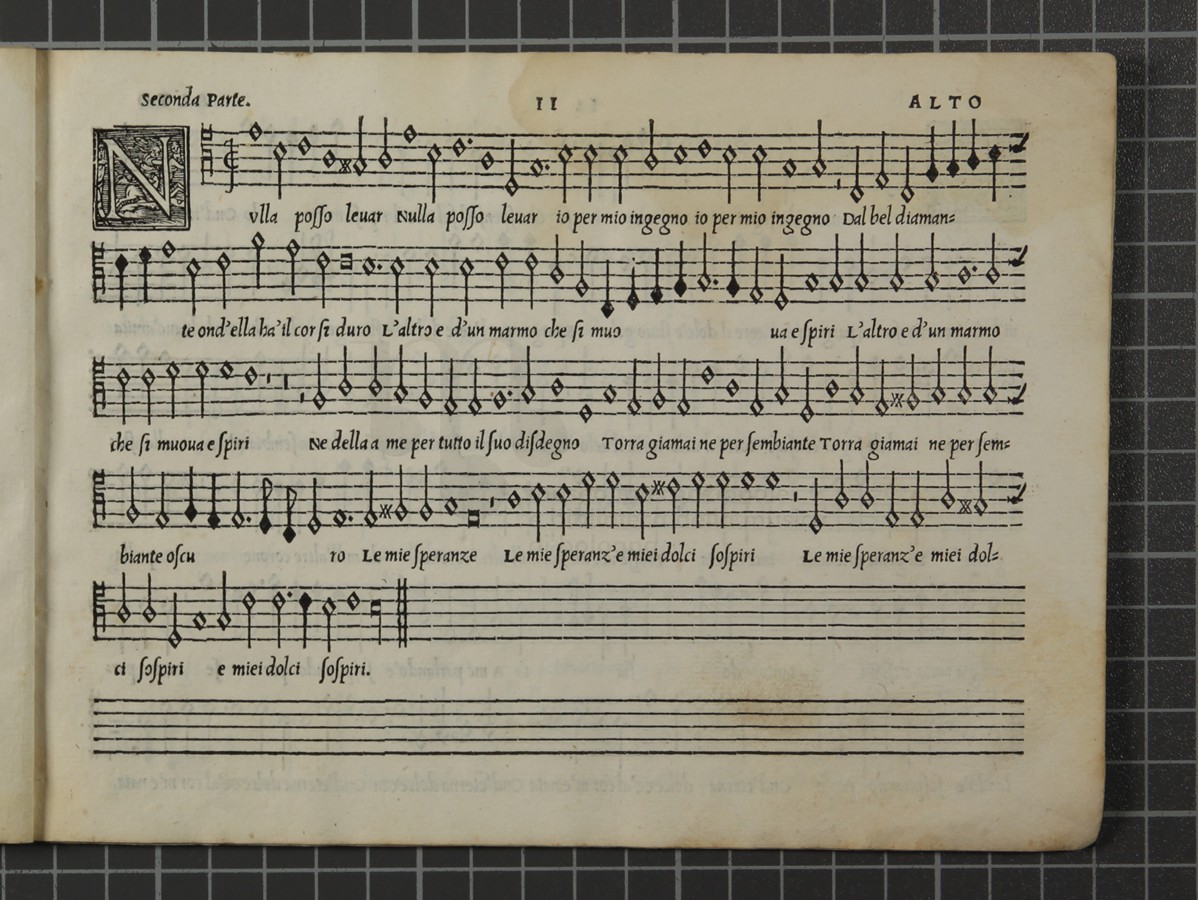 Seconda Parte. II ALTO
Nvlla posso leuar Nulla posso leuar io per mio ingegno io per mio ingegno Dal bel diaman=
te ond'ella ha'il cor si duro L'altro e d'un marmo che si muo ua e spiri L'altro e d'un marmo
che si muoua e spiri Ne della a me per tutto il suo disdegno Torra giamai ne per sembiante Torra giamai ne per sem=
biante oscu ro Le mie speranze Le mie speranz'e miei dolci sospiri Le mie speranz'e miei dol=
ci sospiri e miei dolci sospiri.